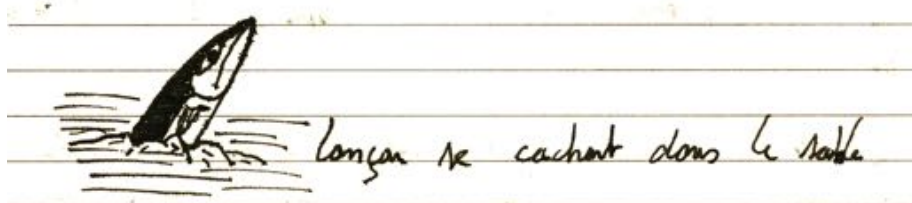 lançon se cachant dans le sable